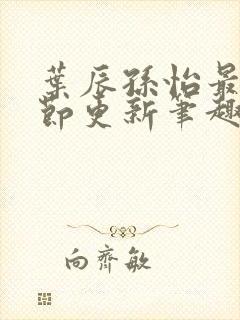 葉辰孫怡最
節更新筆趣
向齊敏